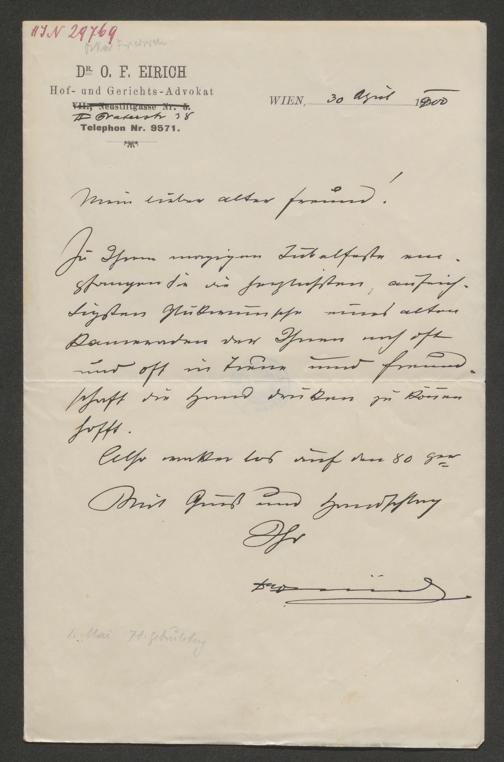 HIN 29769
DR. O. F. EIRICH
Hof- und Gerichts-Advokat
VIII., Neustiftgasse Nr. 5.
II Praterstr 38
Telephon Nr. 9571.
WIEN, 30 April 1900
Mein lieber alter Freund!
Zu Ihrem morgigen Jubelfeste em-
pfangen Sie die herzlichsten, aufrich-
tigsten Glückwünsche eines alten
Kameraden der Ihnen noch oft
und oft in Treue und Freund-
schaft die Hand drücken zu können
hofft.
Also wacker los auf den 80 ger
Mit Gruß und Handschlag
Ihr
1. Mai 70. Geburtstag